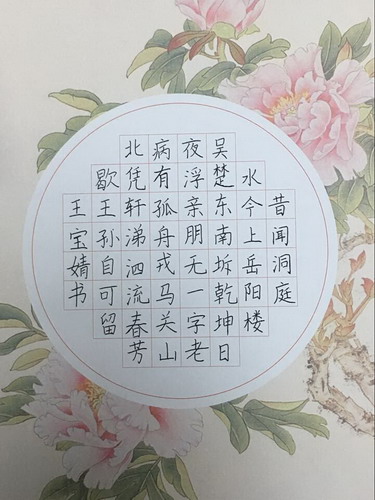 昔闻洞庭
水今上岳阳楼
吴楚东南坼乾坤日
夜浮亲朋无一字老
病有孤舟戎马关山
北凭轩涕泗流春芳
歇王孙自可留
王宝婧书